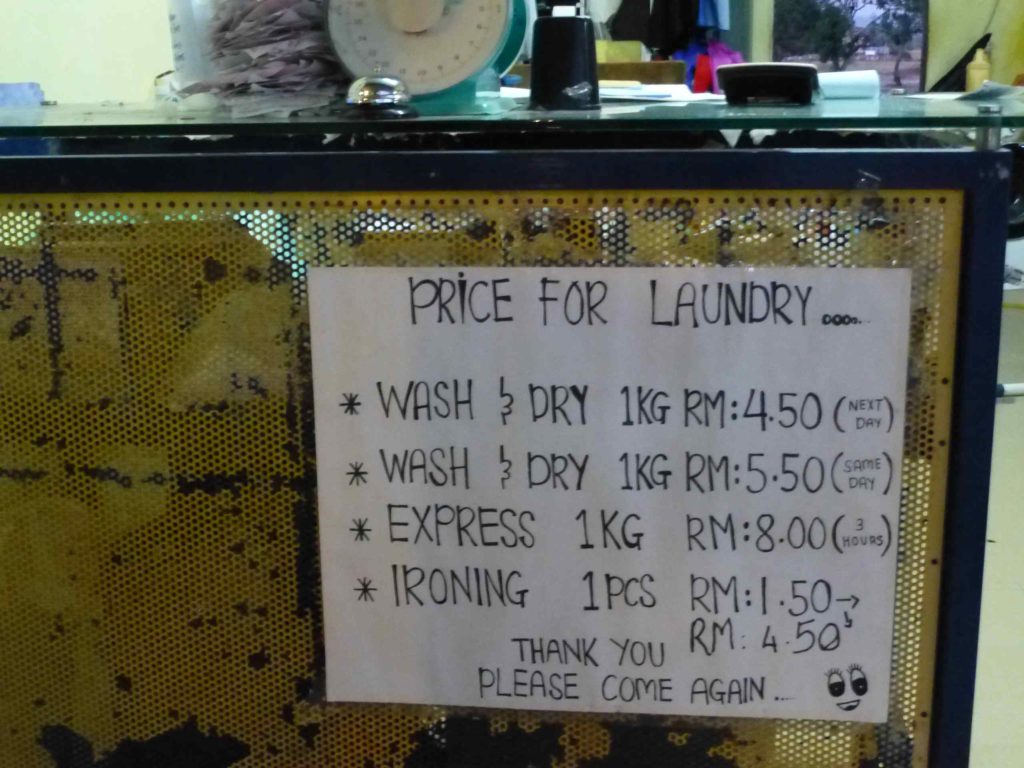 PRICE FOR LAUNDRY.....
* WASH & DRY 1KG RM:4.50 (NEXT DAY)
* WASH & DRY 1KG RM:5.50 (SAME DAY)
* EXPRESS 1KG RM:8.00 (3 HOURS)
* IRONING 1PCS RM:1.50→
RM: 4.50
THANK YOU
PLEASE COME AGAIN...